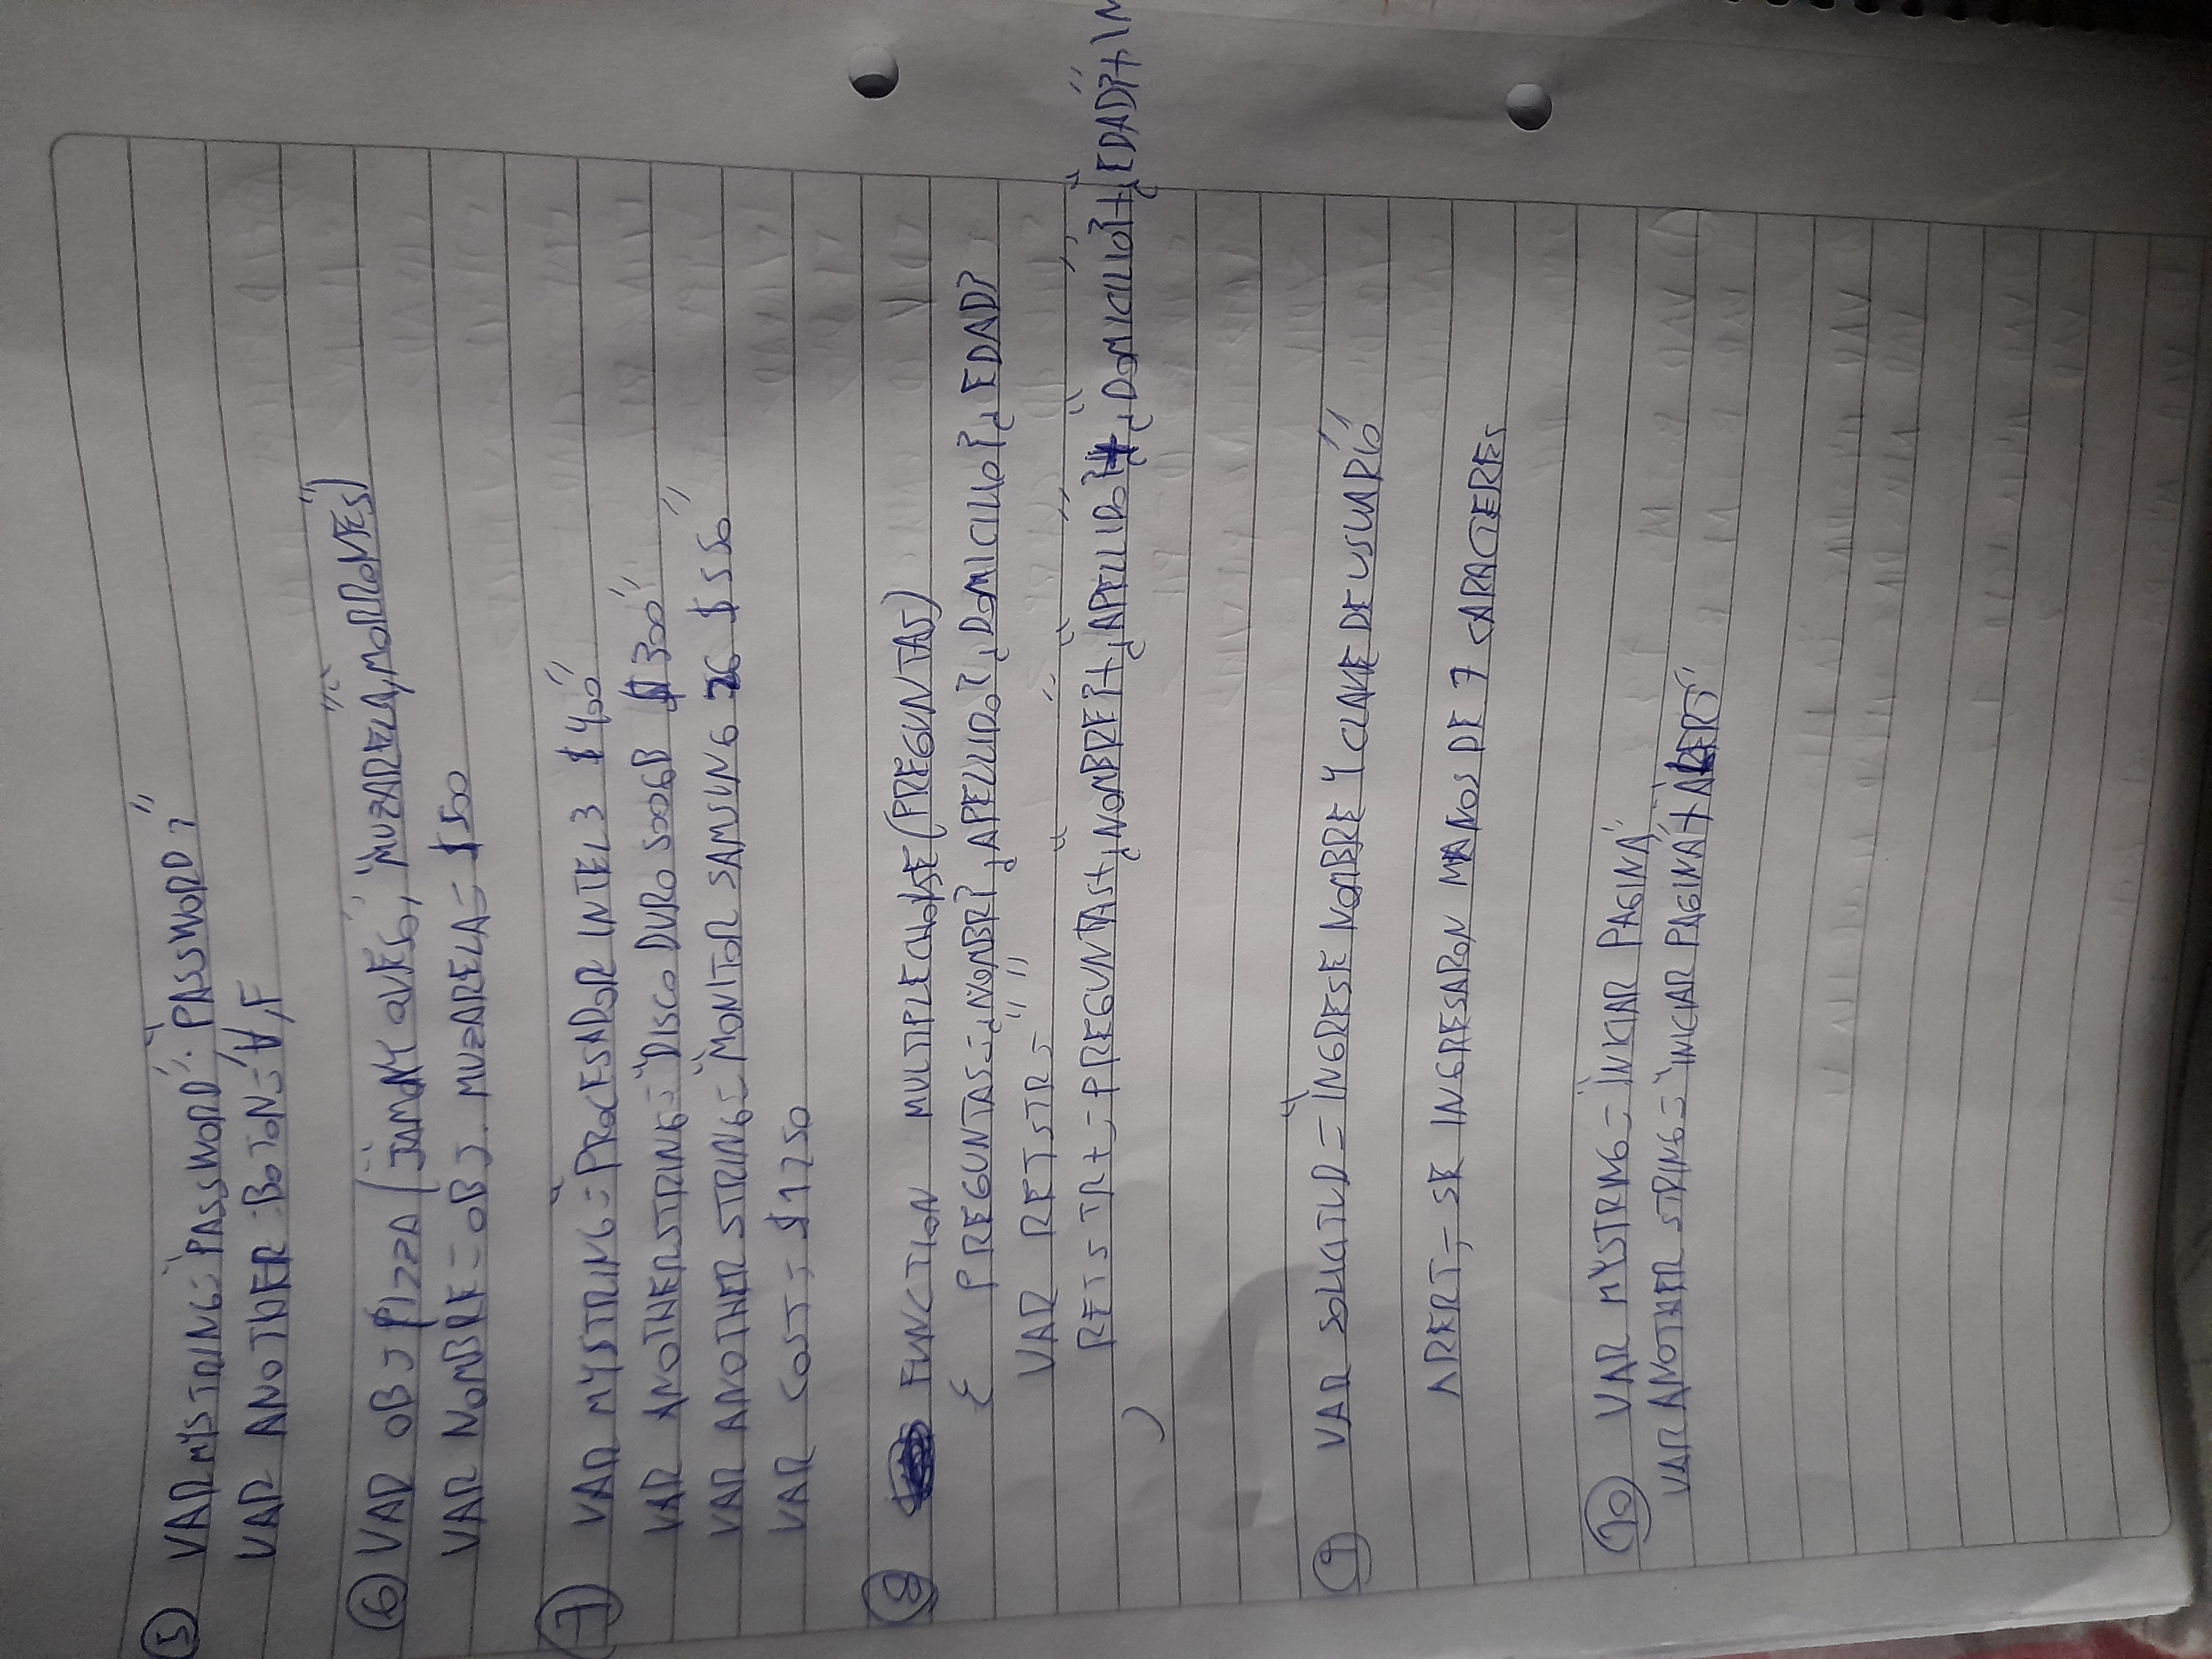 5 VAR MYSTRING= "PASSWORD"; "PASSWORD?"
VAR ANOTHER BOTON= V,F
6 VAR OBJ PIZZA ("JAMON Y QUESO", "MUZARELA", "MORRONES")
VAR NOMBRE = OBJ. MUZARELA= $500
7 VAR MYSTRING= "PROCESADOR INTEL 3 $400"
VAR ANOTHERSTRING= "DISCO DURO 500GB $300"
VAR ANOTHER STRING= "MONITOR SAMSUNG 26 $550"
VAR COST= $1250
8 FUNCTION MULTIPLECHOISE (PREGUNTAS)
{ PREGUNTAS=¿NOMBR?¿APELLIDO?¿DOMICILIO?¿EDAD?
VAR RETSTR= ""
RETSTR+=PREGUNTAS+"¿NOMBRE?"+"¿APELLIDO?"+"¿DOMICILIO?"+"¿EDAD?"+\N
)
9 VAR SOLICITUD = "INGRESE NOMBRE Y CLAVE DE USUARIO"
ARERT= SE INGRESARON MANOS DE 7 CARACTERES
10 VAR MYSTRING= "INICIAR PAGINA"
VAR ANOTHER STRING= "INICIAR PAGINA"+"ALERT"